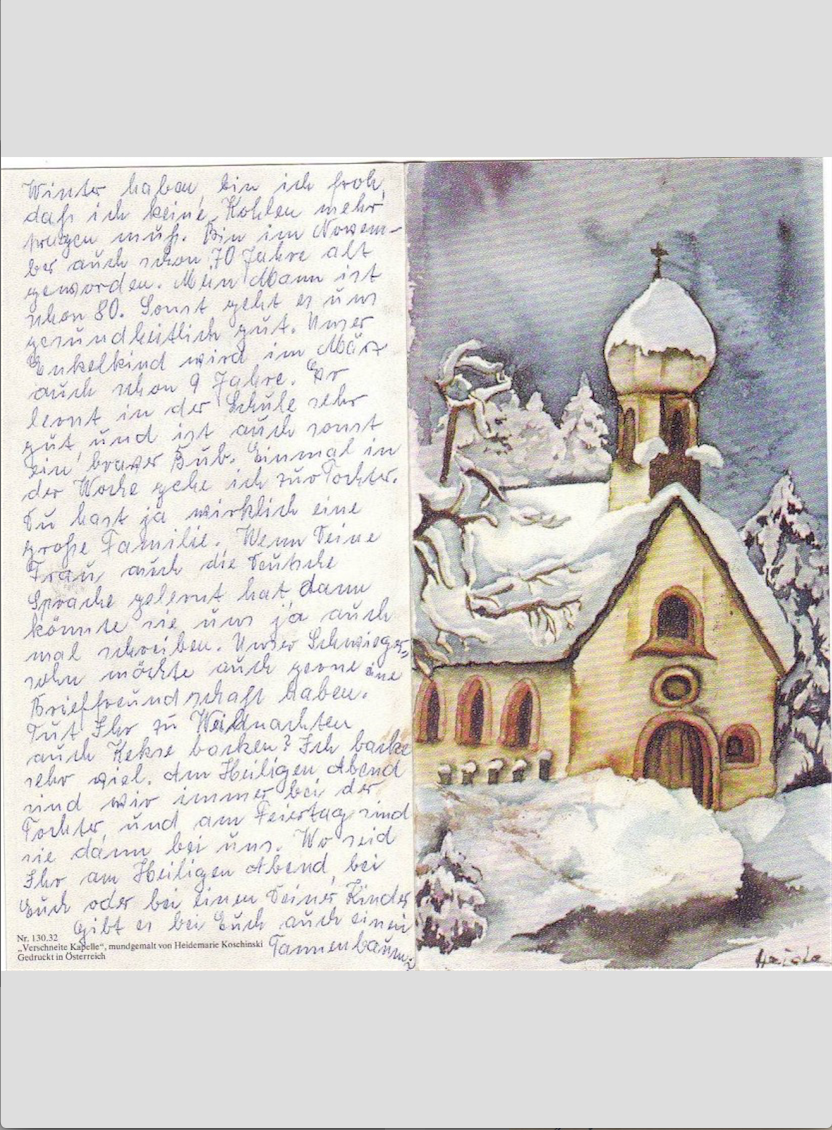 Winter haben bin ich froh,
daß ich keine Kohlen mehr
tragen muß. Bin im Novem-
ber auch schon 70 Jahre alt
geworden. Mein Mann ist
schon 80. Sonst geht es uns
gesundheitlich gut. Unser
Enkelkind wird im März
auch schon 9 Jahre. Er
lernt in der Schule sehr
gut und ist auch sonst
ein braver Bub. Einmal in
der Woche gehe ich zur Tochter.
Du hast ja wirklich eine
große Familie. Wenn Deine
Frau auch die Deutsche
Sprache gelernt hat dann
könnte sie uns ja auch
mal schreiben. Unser Schwieger-
sohn möchte auch gerne eine
Brieffreundschaft haben.
Tut Ihr zu Weihnachten
auch Kekse backen? Ich backe
sehr viel. Am Heiligen Abend
sind wir immer bei der
Tochter und am Feiertag sind
sie dann bei uns. Wo seid
Ihr am Heiligen Abend, bei
Euch oder bei einen Deiner Kinder
Gibt es bei Euch auch einen
Tannenbaum?
Nr. 130.32
„Verschneite Kapelle“, mundgemalt von Heidemarie Koschinski
Gedruckt in Österreich